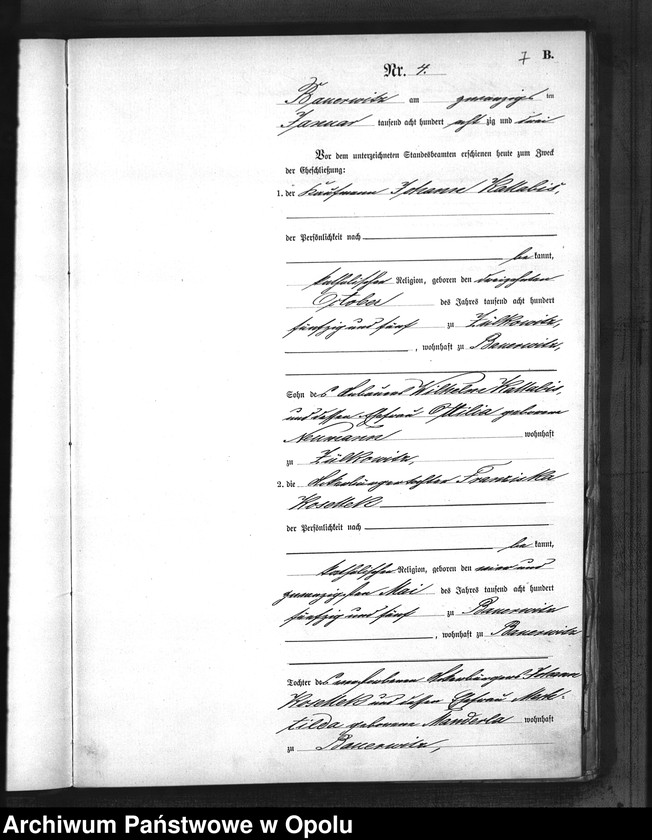 7 B.
Nr. 4.
Bauerwitz am zwanzigsten
Januar tausend acht hundert achtzig und zwei
Vor dem unterzeichneten Standesbeamten erschienen heute zum Zweck
der Eheschließung:
1. der Kaufmann Johann Kattabis,
der Persönlichkeit nach
bekannt,
katholischer Religion, geboren den dreizehnten
October des Jahres tausend acht hundert
fünfzig und fünf zu Zülkowitz,
, wohnhaft zu Bauerwitz,
Sohn des Anbauers Wilhelm Kattabis,
und dessen Ehefrau Ottilia geborene
Neumann wohnhaft
zu Zülkowitz,
2. die Ackerbürgertochter Franziska
Kosellek
der Persönlichkeit nach
bekannt,
katholischer Religion, geboren den vier und
zwanzigsten Mai des Jahres tausend acht hundert
fünfzig und fünf zu Bauerwitz
, wohnhaft zu Bauerwitz
Tochter des verstorbenen Ackerbürgers Johann
Kosellek und dessen Ehefrau Mach-
tilda geborene Manderla wohnhaft
zu Bauerwitz,
Archiwum Państwowe w Opolu